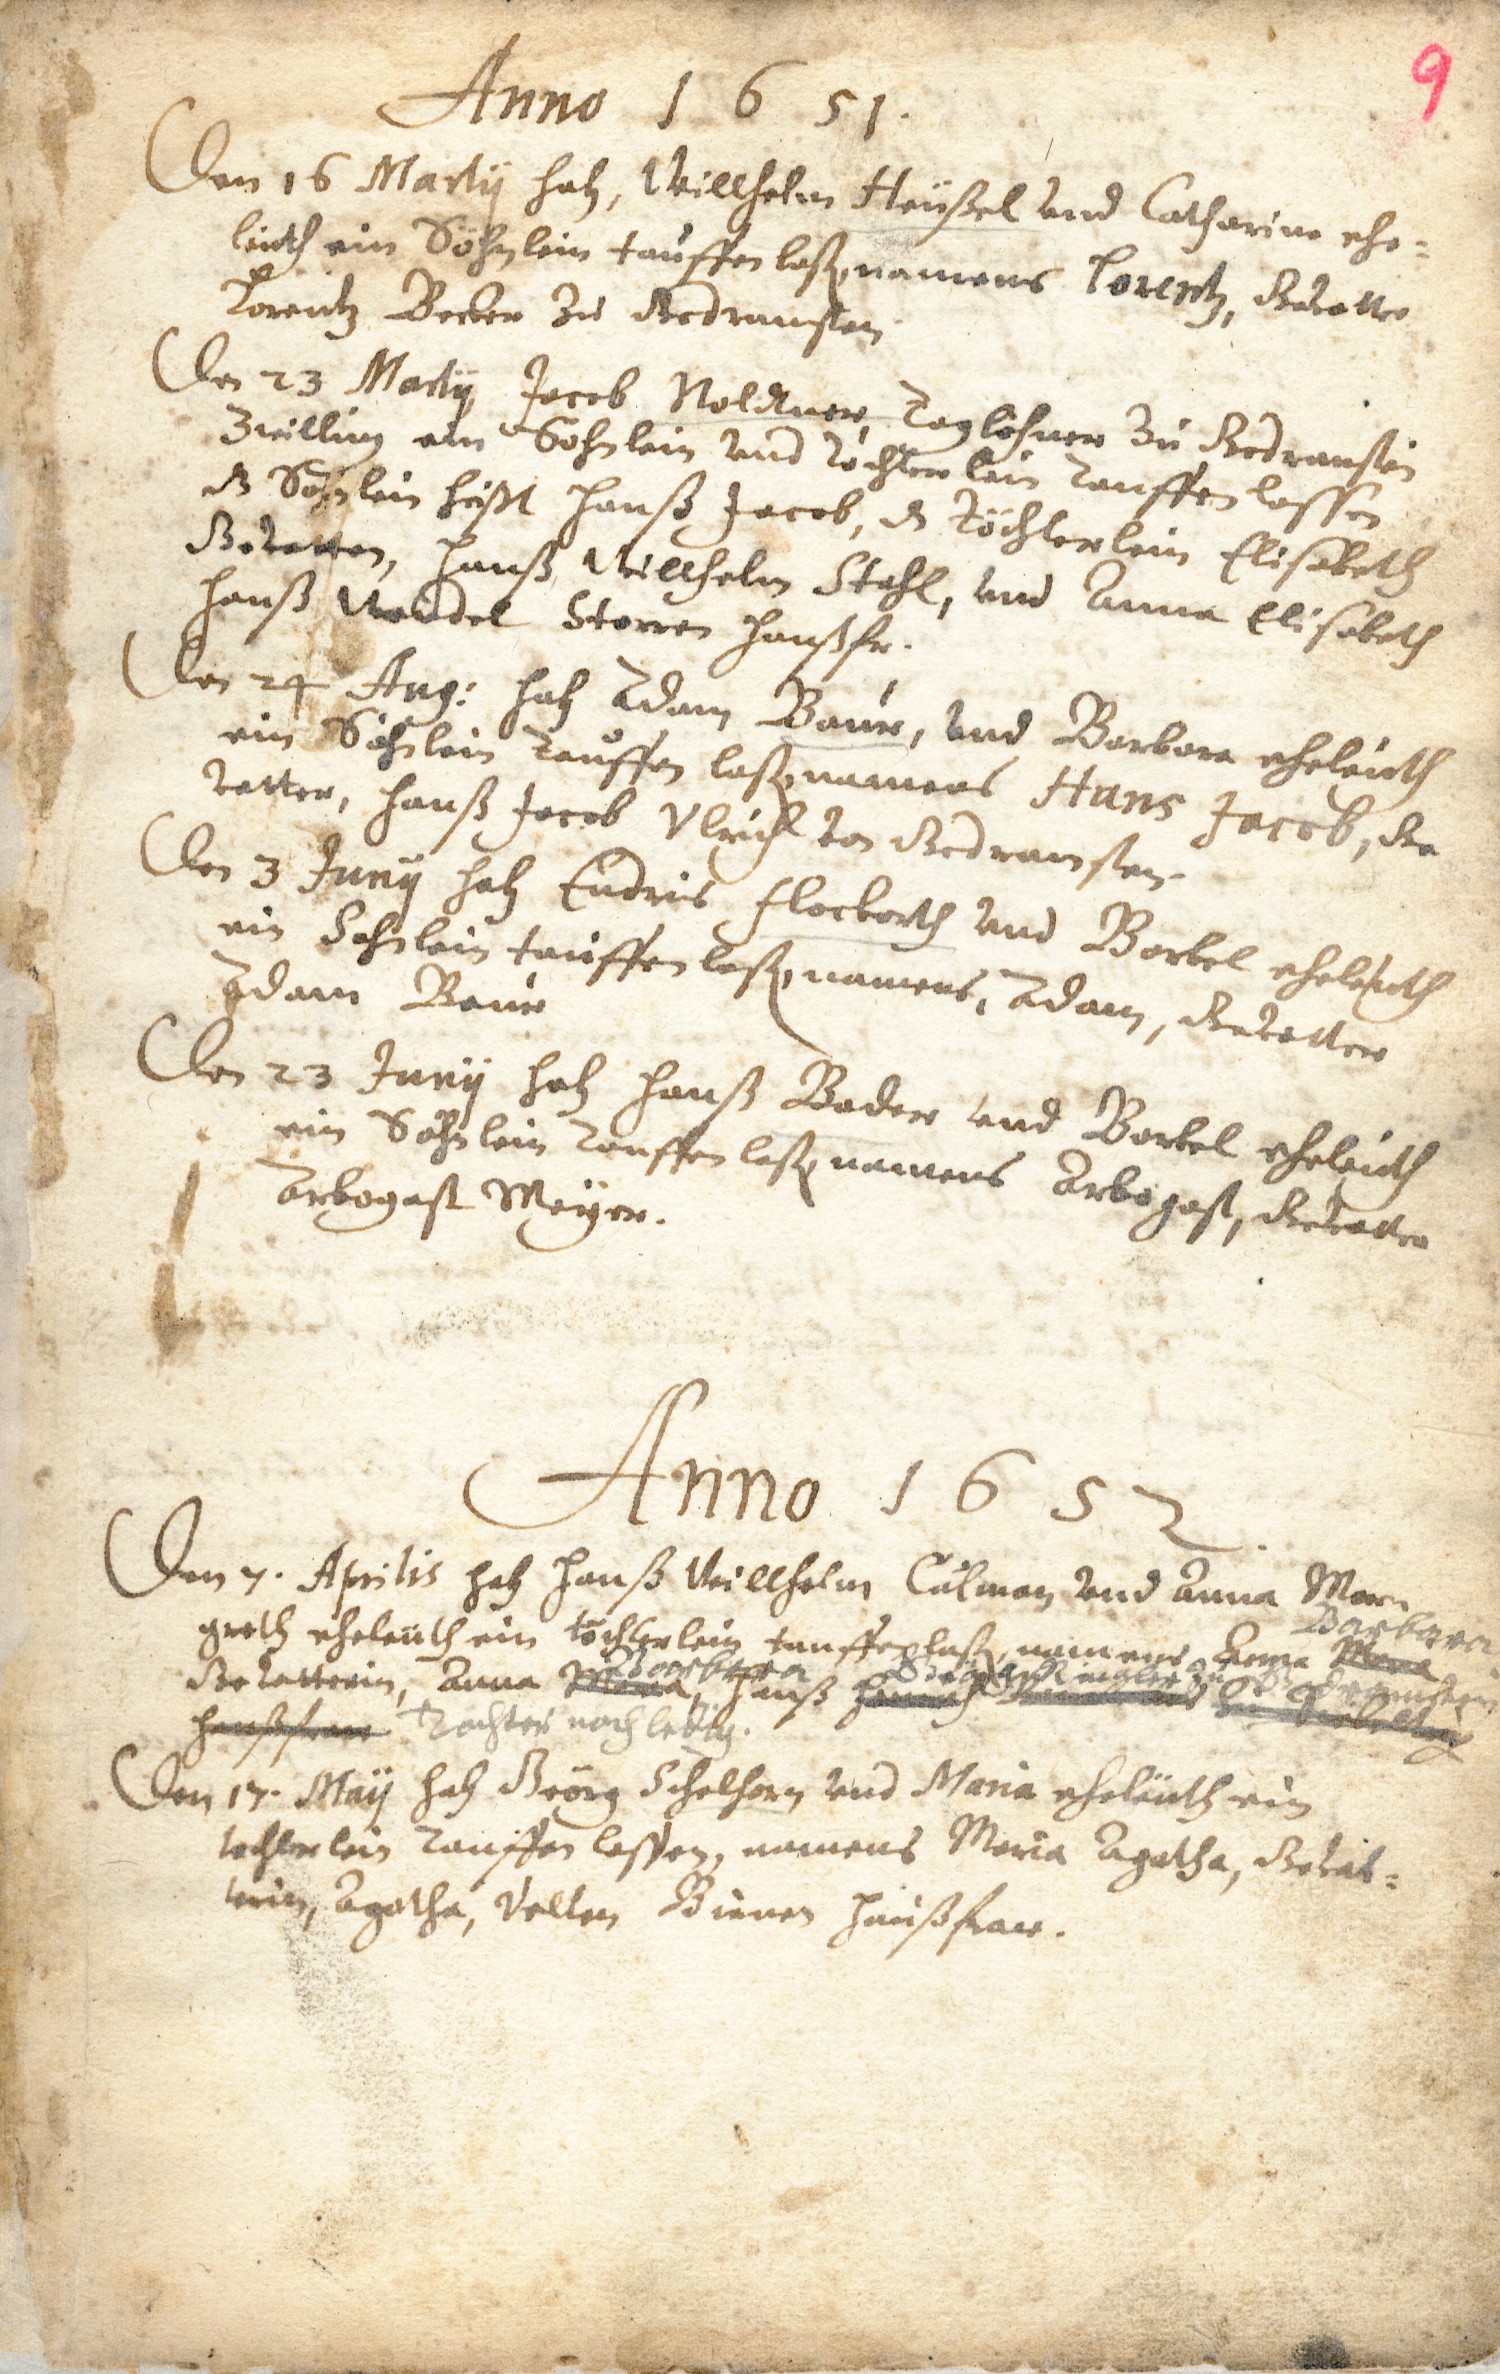 9
Anno 1651.
Den 16 Martij hatt, Willhelm Heüßel vnd Catharina ehe=
leuth ein Söhnlein tauffen laßen, namens Lorentz, Gevatter
Lorentz Becker zu Godramstein.
Den 23 Martij Jacob Noldner, Taglöhner zu Godramstein
Zwilling ein Söhnlein vnd Töchterlein tauffen lassen
dz Söhnlein heißt Hanß Jacob, dz Töchterlein Elisabeth
Gevattern, Hanß Willhelm Stahl, vnd Anna Elisabeth
Hanß Wendel Storren Haußfr.
Den 24 Aug: hatt Adam Baur, vnd Barbara eheleuth
ein Söhnlein Tauffen laßen namens Hans Jacob, Ge
vatter, Hanß Jacob Ulrich von Godramstein.
Den 3 Junij hatt Endris Flockerth vnd Barbel eheleuth
ein Söhnlein tauffen laßen, namens, Adam, Gevatter
Adam Baur
Den 23 Junij hatt Hanß Bader vnd Barbel eheleuth
ein Söhnlein Tauffen laßen namens Arbogast, Gevatter
Arbogast Meyer.
Anno 1652.
Den 7. Aprilis hatt Hanß Willhelm Culman vnd Anna Mar
Barbara
greth eheleuth ein töchterlein tauffen laßen, namens Anna Maria
Barbara
Gevatterin, Anna Maria, Hanß
haußfraw Tochter noch ledig.
Den 17. Maij hatt Georg Schelhorn vnd Maria eheleuth ein
tochterlein Tauffen lassen, namens Maria Agatha, Gevat=
terin, Agatha, Velten Bienen Haußfraw.